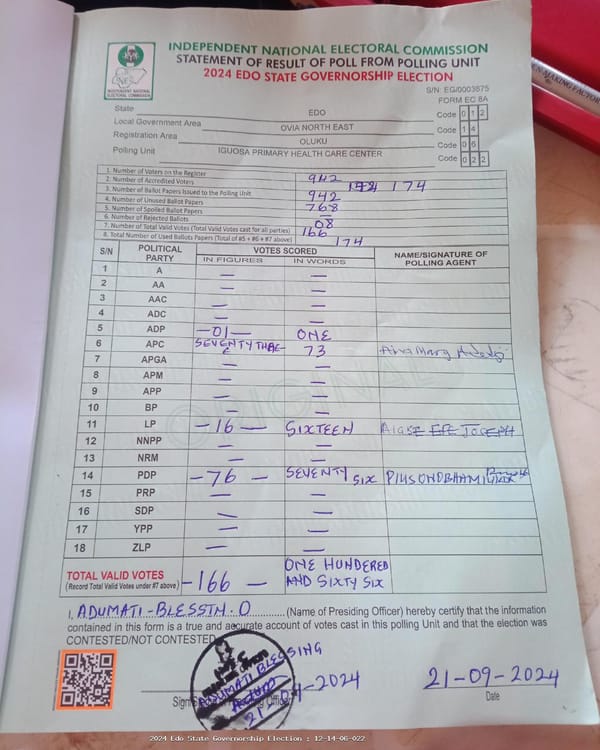 INDEPENDENT NATIONAL ELECTORAL COMMISSION
STATEMENT OF RESULT OF POLL FROM POLLING UNIT
2024 EDO STATE GOVERNORSHIP ELECTION
INDEPENDENT NATIONAL ELECTORAL COMMISSION
S/N: EG/0003875
FORM EC 8A
State EDO Code 0 1 2
Local Government Area OVIA NORTH EAST Code 1 4
Registration Area OLUKU Code 0 6
Polling Unit IGUOSA PRIMARY HEALTH CARE CENTER Code 0 2 2
1. Number of Voters on the Register 942
2. Number of Accredited Voters 174 174
3. Number of Ballot Papers Issued to the Polling Unit 942
4. Number of Unused Ballot Papers 768
5. Number of Spoiled Ballot Papers —
6. Number of Rejected Ballots 08
7. Number of Total Valid Votes (Total Valid Votes cast for all parties) 166
8. Total Number of Used Ballots Papers (Total of #5 + #6 + #7 above) 174
S/N POLITICAL PARTY VOTES SCORED NAME/SIGNATURE OF POLLING AGENT
IN FIGURES IN WORDS
1 A — —
2 AA — —
3 AAC — —
4 ADC — —
5 ADP —01— ONE
6 APC SEVENTY THREE 73
7 APGA — —
8 APM — —
9 APP — —
10 BP — —
11 LP —16— SIXTEEN JOSEPH
12 NNPP — —
13 NRM — —
14 PDP —76— SEVENTY SIX PIUS
15 PRP — —
16 SDP — —
17 YPP — —
18 ZLP — —
TOTAL VALID VOTES —166— ONE HUNDERED AND SIXTY SIX
(Record Total Valid Votes under #7 above)
ORIGINAL
I, ADUMATI-BLESSIN.O (Name of Presiding Officer) hereby certify that the information
contained in this form is a true and accurate account of votes cast in this polling Unit and that the election was
CONTESTED/NOT CONTESTED
ADUMATI BLESSING
21-09-2024
21-09-2024
Date
2024 Edo State Governorship Election : 12-14-06-022